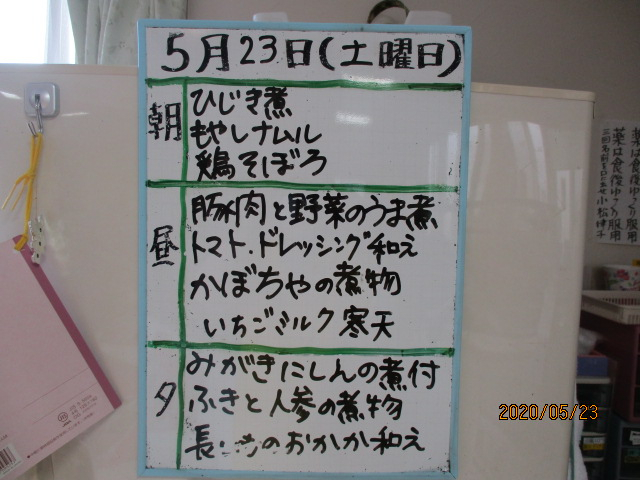 5月23日(土曜日)
朝
ひじき煮
もやしナムル
鶏そぼろ
昼
豚肉と野菜のうま煮
トマト.ドレッシング和え
かぼちゃの煮物
いちごミルク寒天
夕
みがきにしんの煮付
ふきと人参の煮物
長いものおかか和え
薬は食後ゆっくり服用
2020/05/23